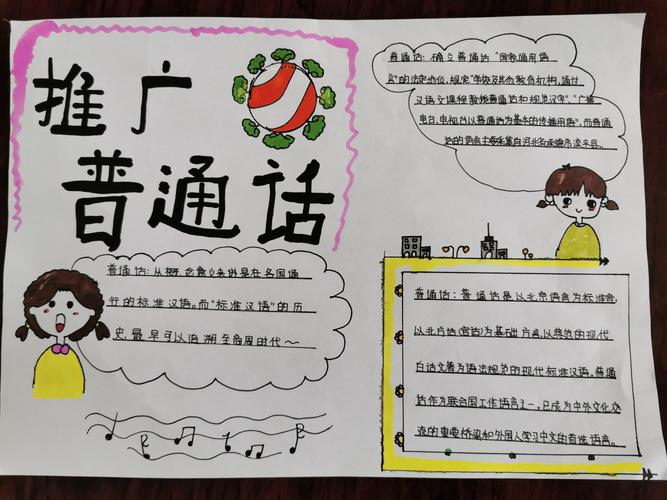 推广
普通话
普通话:从概念意义来讲是在各国通
行的标准汉语。而"标准汉语"的历
史,最早可以追溯至商周时代~
普通话:确立普通话"国家通用语
言"的法定地位,规定"学校及其他教育机构,通过
汉语文课程教授普通话和规范汉字","广播
电台,电视台以普通话为基本的传播用语",而普通
话的语音主要采集自河北省承德市滦平县。
普通话:普通话是以北京语言为标准音,
以北方话(官话)为基础方言,以典范的现代
白话文著为语法规范的现代标准汉语。普通
话作为联合国工作语言之一,已成为中外文化交
流的重要桥梁和外国人学习中文的首选语言。